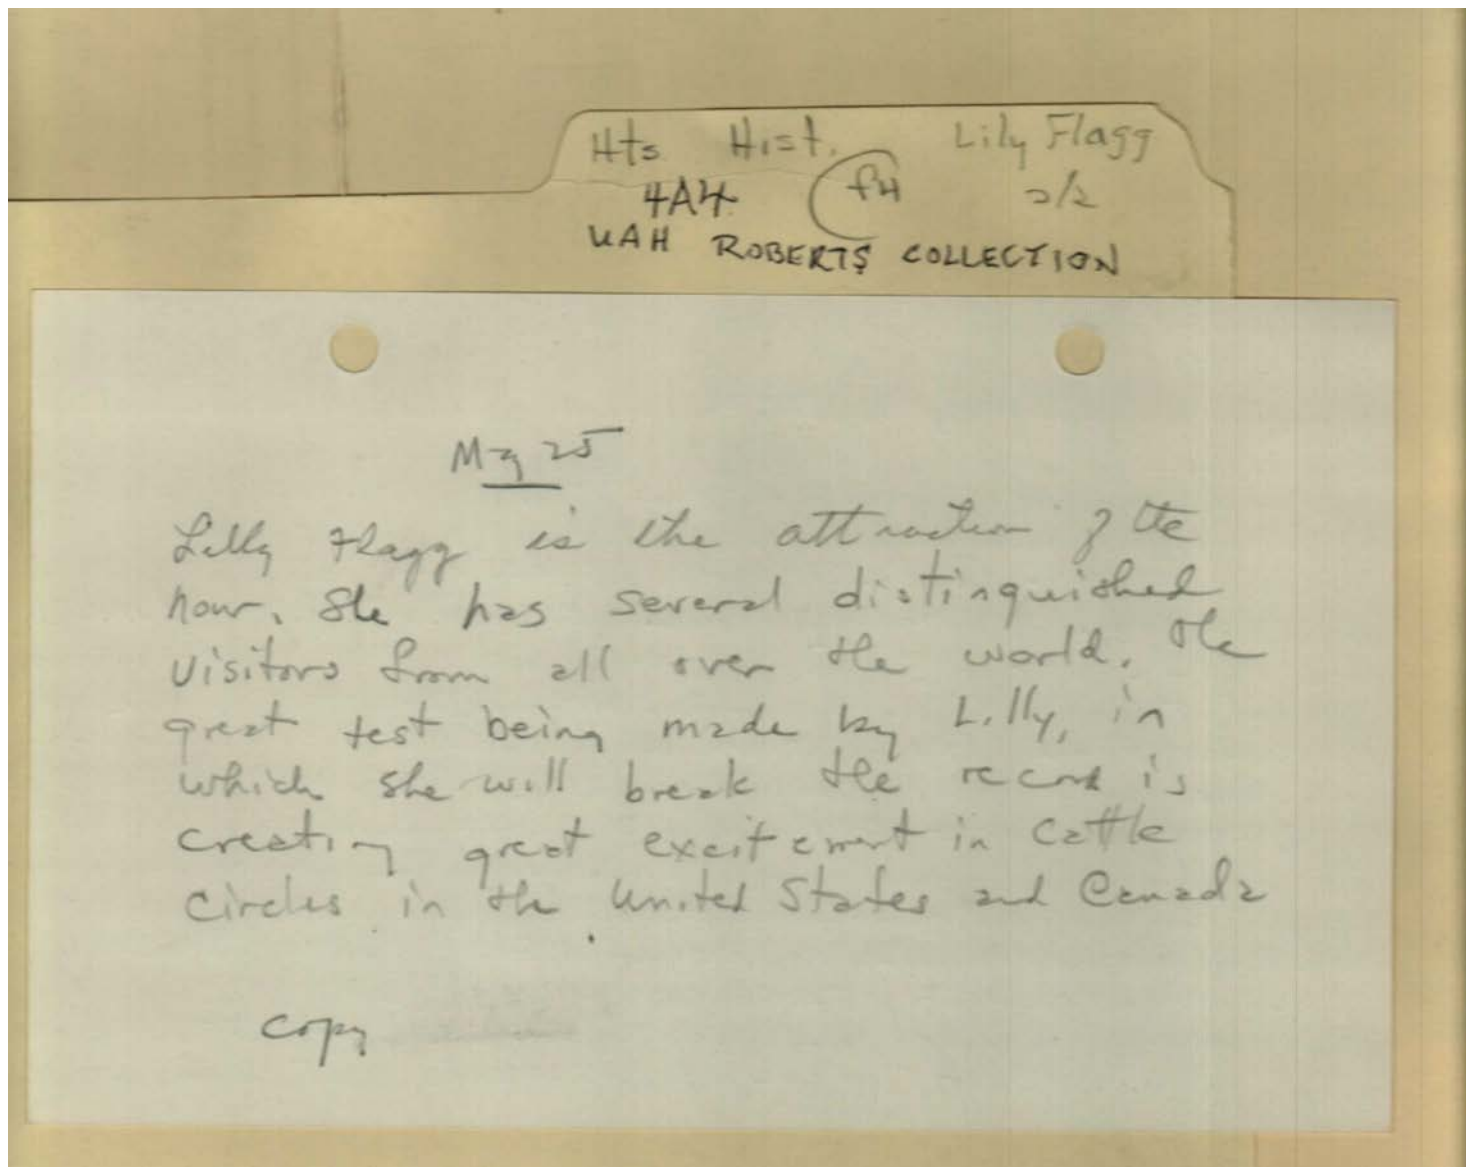 Hts Hist. Lily Flagg
4A4 f4 2/2
UAH ROBERTS COLLECTION
My 25
Lilly Flagg is the attraction of the
hour. She has several distinguished
visitors from all over the world. The
great test being made by Lilly, in
which she will break the record is
creating great excitement in cattle
circles in the United States and Canada
.
copy